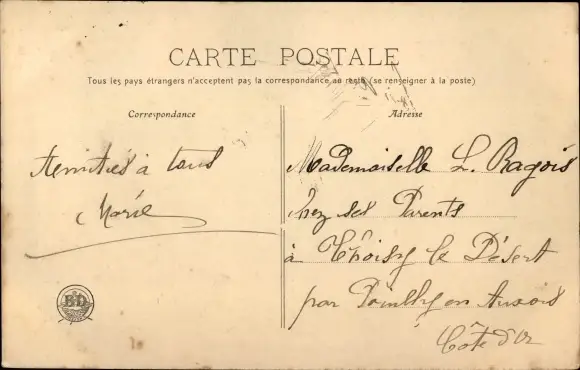 CARTE POSTALE
Tous les pays étrangers n'acceptent pas la correspondance au recto (se renseigner à la poste)
Correspondance
Adresse
Amitiés à tous
Marie
Mademoiselle L. Ragois
chez ses Parents
à Thoisy le Désert
par Pouilly en Auxois
Côte d'Or
BD